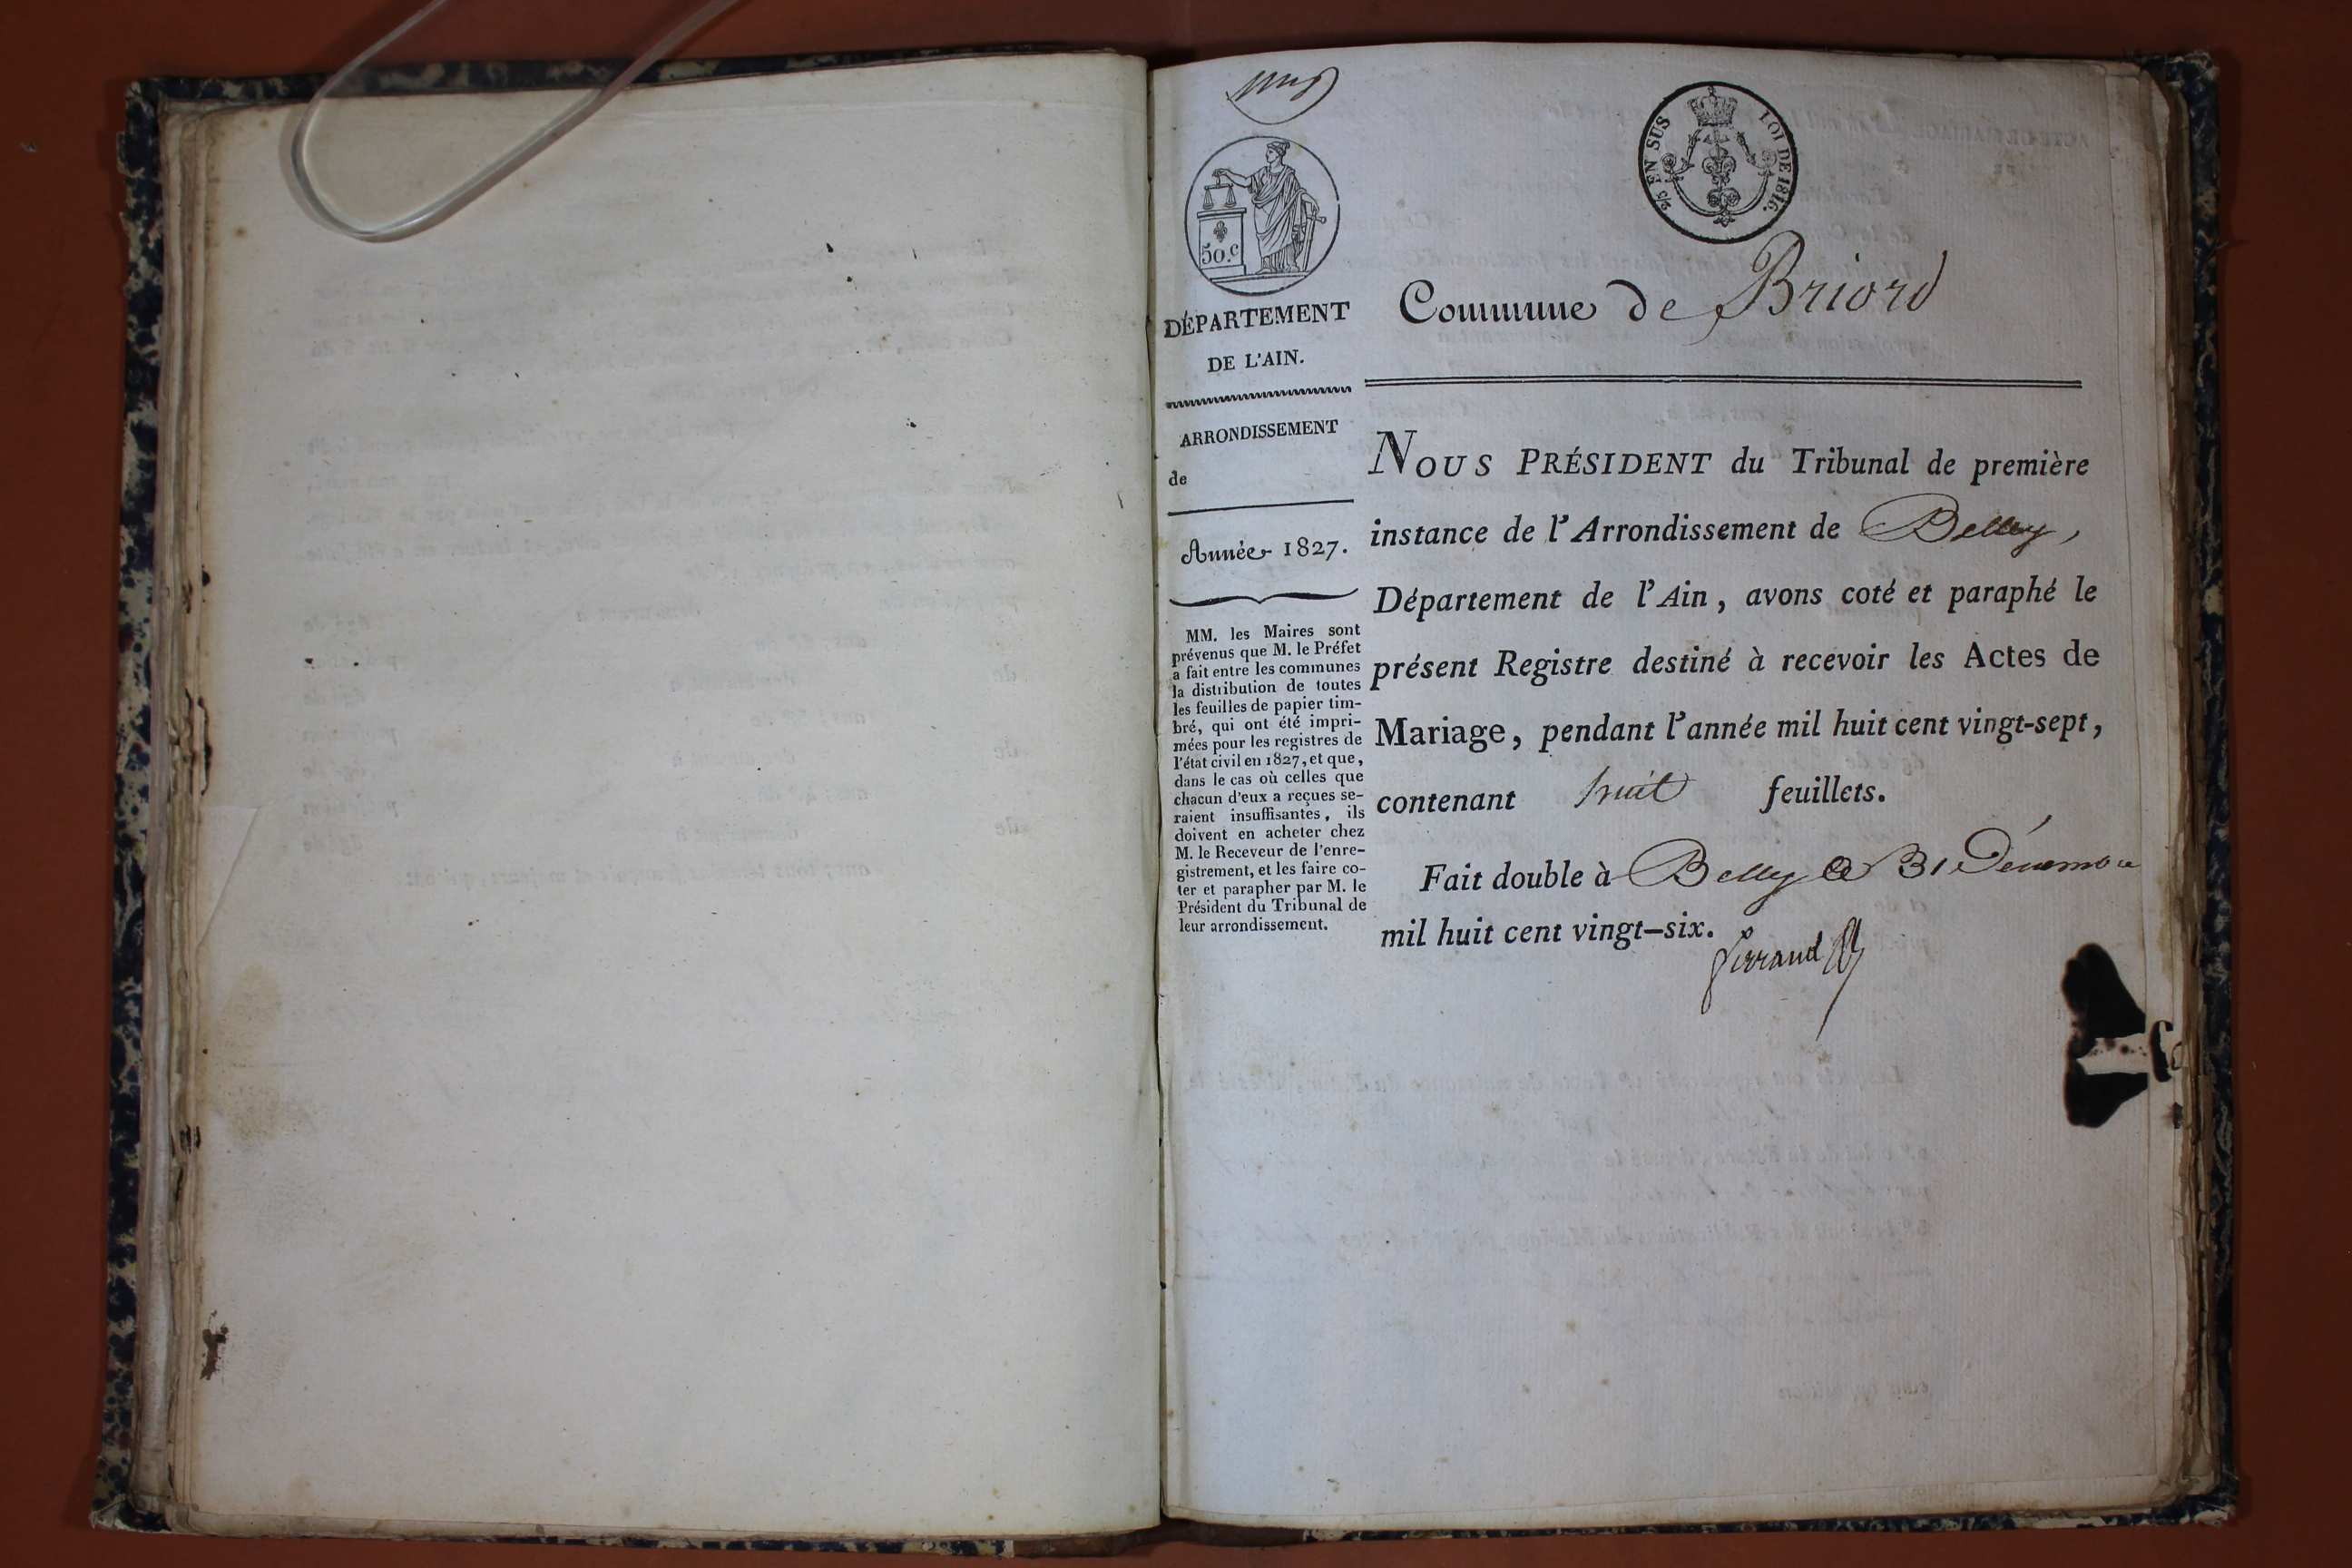 50.C
2/5 EN SUS
LOI DE 1816.
DÉPARTEMENT
DE L'AIN.
ARRONDISSEMENT
de
Année 1827.
MM. les Maires sont
prévenus que M. le Préfet
a fait entre les communes
la distribution de toutes
les feuilles de papier tim-
bré, qui ont été impri-
mées pour les registres de
l'état civil en 1827, et que,
dans le cas où celles que
chacun d'eux a reçues se-
raient insuffisantes, ils
doivent en acheter chez
M. le Receveur de l'enre-
gistrement, et les faire co-
ter et parapher par M. le
Président du Tribunal de
leur arrondissement.
Commune de Briord
NOUS PRÉSIDENT du Tribunal de première
instance de l'Arrondissement de Belley,
Département de l'Ain, avons coté et paraphé le
présent Registre destiné à recevoir les Actes de
Mariage, pendant l'année mil huit cent vingt-sept,
contenant huit feuillets.
Fait double à Belley le 31 Décembre
mil huit cent vingt-six.